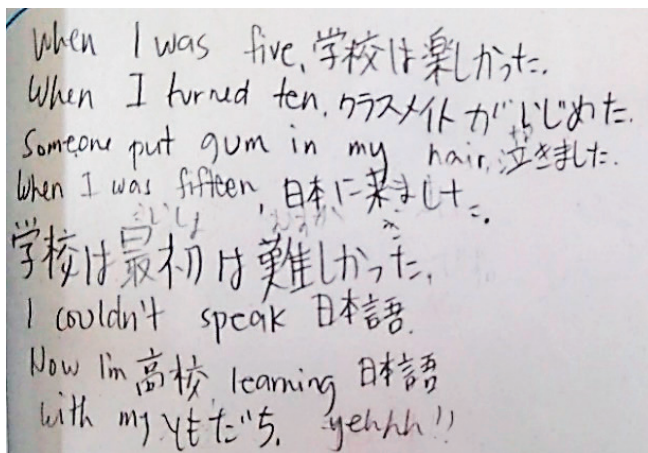 When I was five, 学校は楽しかった.
When I turned ten, クラスメイトがいじめた.
Someone put gum in my hair, 泣きました.
When I was fifteen, 日本に来ました.
学校は最初は難しかった.
I couldn't speak 日本語.
Now I'm 高校, learning 日本語
with my ともだち. yehhh!!